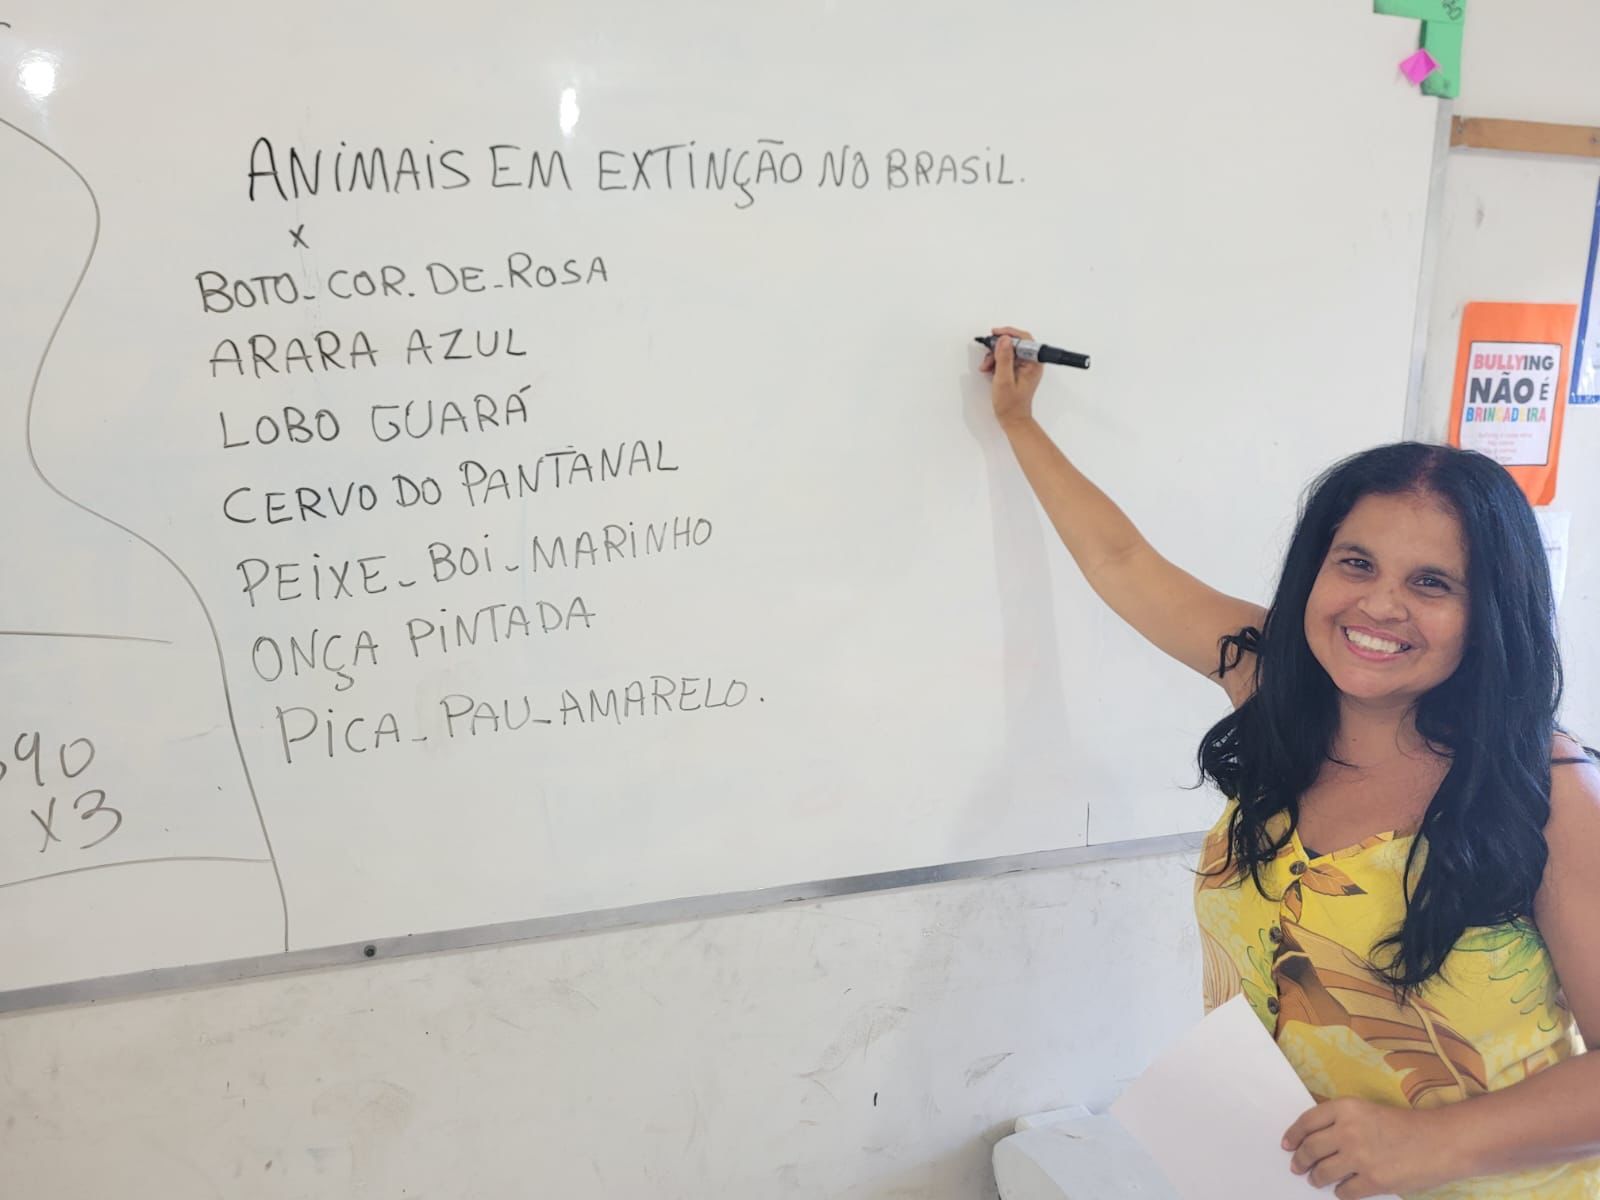 ANIMAIS EM EXTINÇÃO NO BRASIL.
x
BOTO-COR.DE-ROSA
ARARA AZUL
LOBO GUARÁ
CERVO DO PANTANAL
PEIXE-BOI-MARINHO
ONÇA PINTADA
PICA-PAU-AMARELO.
90
x3
BULLYING
NÃO É
BRINCADEIRA